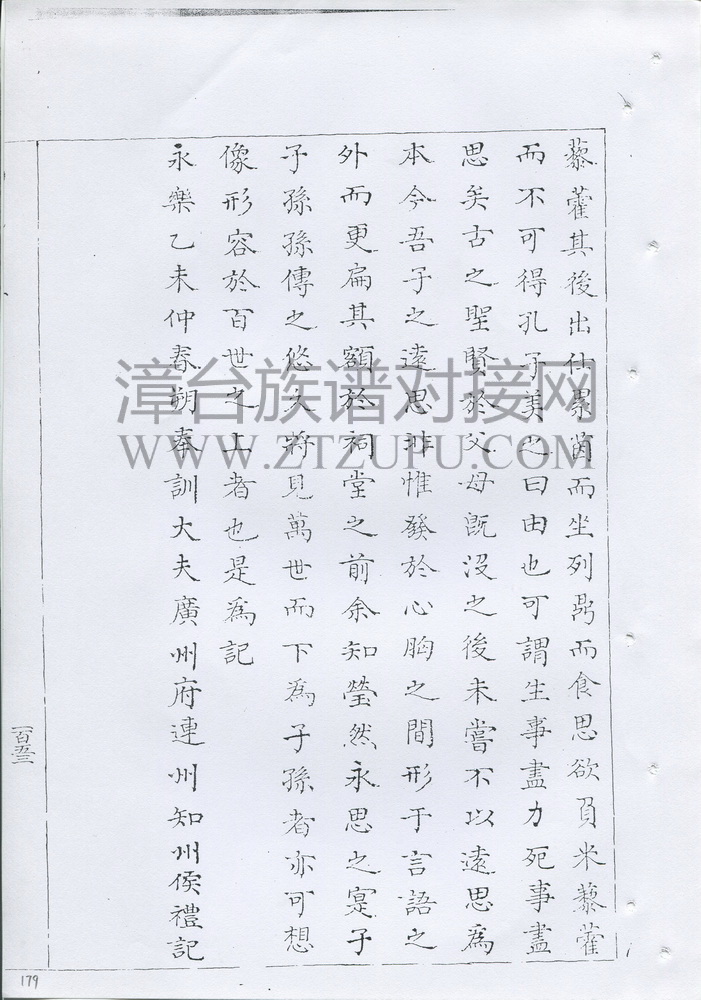 藜藿其後出仕累茵而坐列鼎而食思欲負米藜藿
而不可得孔子美之曰由也可謂生事盡力死事盡
思矣古之聖賢於父母既没之後未嘗不以遠思為
本今吾子之遠思非惟發於心胸之間形于言語之
外而更扁其額於祠堂之前余知瑩然永思之寔子
子孫孫傳之悠久將見萬世而下為子孫者亦可想
像形容於百世之上者也是為記
永樂乙未仲春朔奉訓大夫廣州府連州知州侯禮記
一百五三
179
漳台族谱对接网
WWW.ZTZUPU.COM